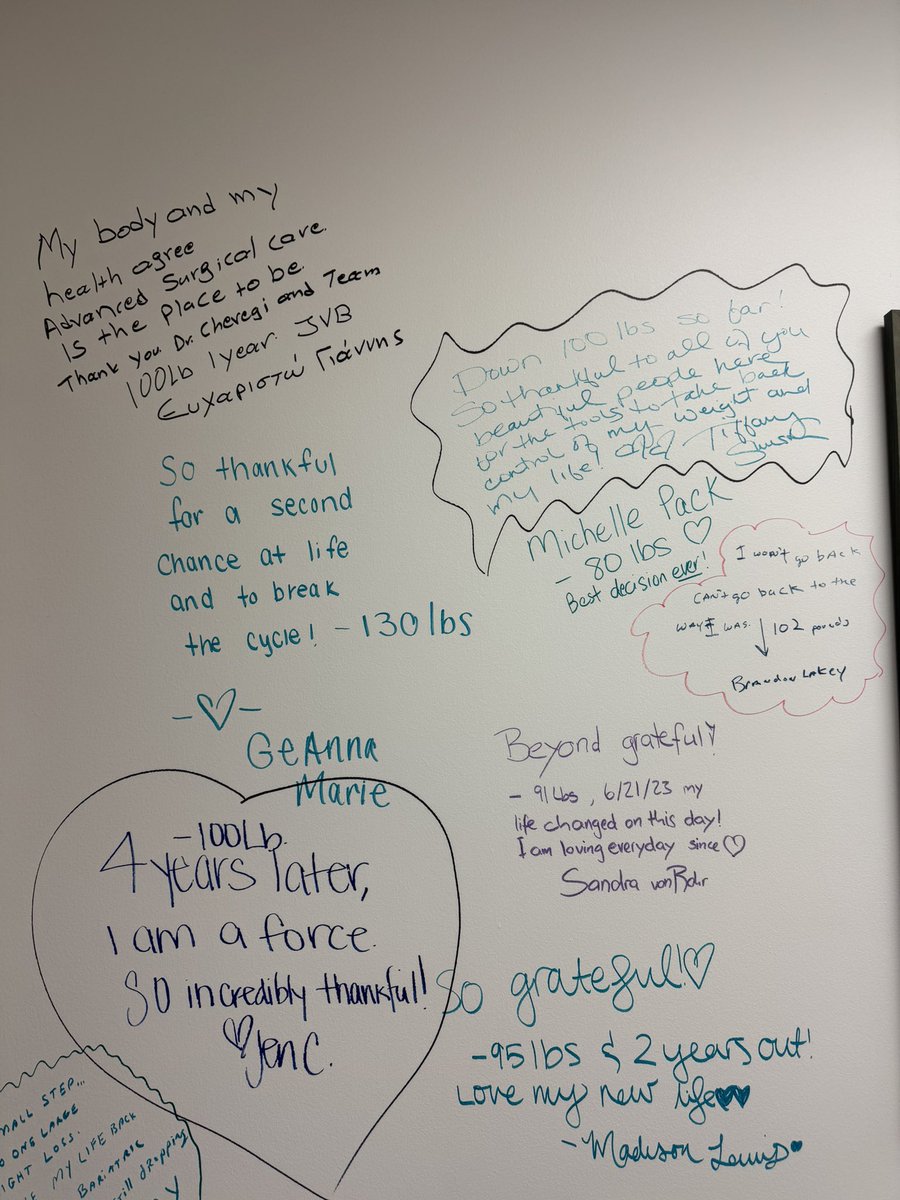 My body and my
health agree
Advanced Surgical care
is the place to be.
Thank you Dr. Cheregi and Team
100Lb 1 year JVB
Ευχαριστώ Γιάννης
Down 100 lbs so far!
So thankful to all of you
beautiful people here
for the tools to take back
control of my weight and
my life! Tiffany
So thankful
for a second
chance at life
and to break
the cycle! - 130 lbs
-♡-
GeAnna
Marie
Michelle Pack
- 80 lbs ♡
Best decision ever!
I won't go back
can't go back to the
way I was. ↓ 102 pounds
Brandon Lakey
Beyond grateful!
- 91 Lbs, 6/21/23 my
life changed on this day!
I am loving everyday since ♡
Sandra vonRohr
-100Lb.
4 years later,
I am a force.
So incredibly thankful!
♡Jen C.
So grateful!♡
-95 lbs & 2 years out!
Love my new life♥♥
- Madison Lewis♥
MALL STEP...
ONE LARGE
IGHT LOSS.
MY LIFE BACK
BARIATRIC
still dropping